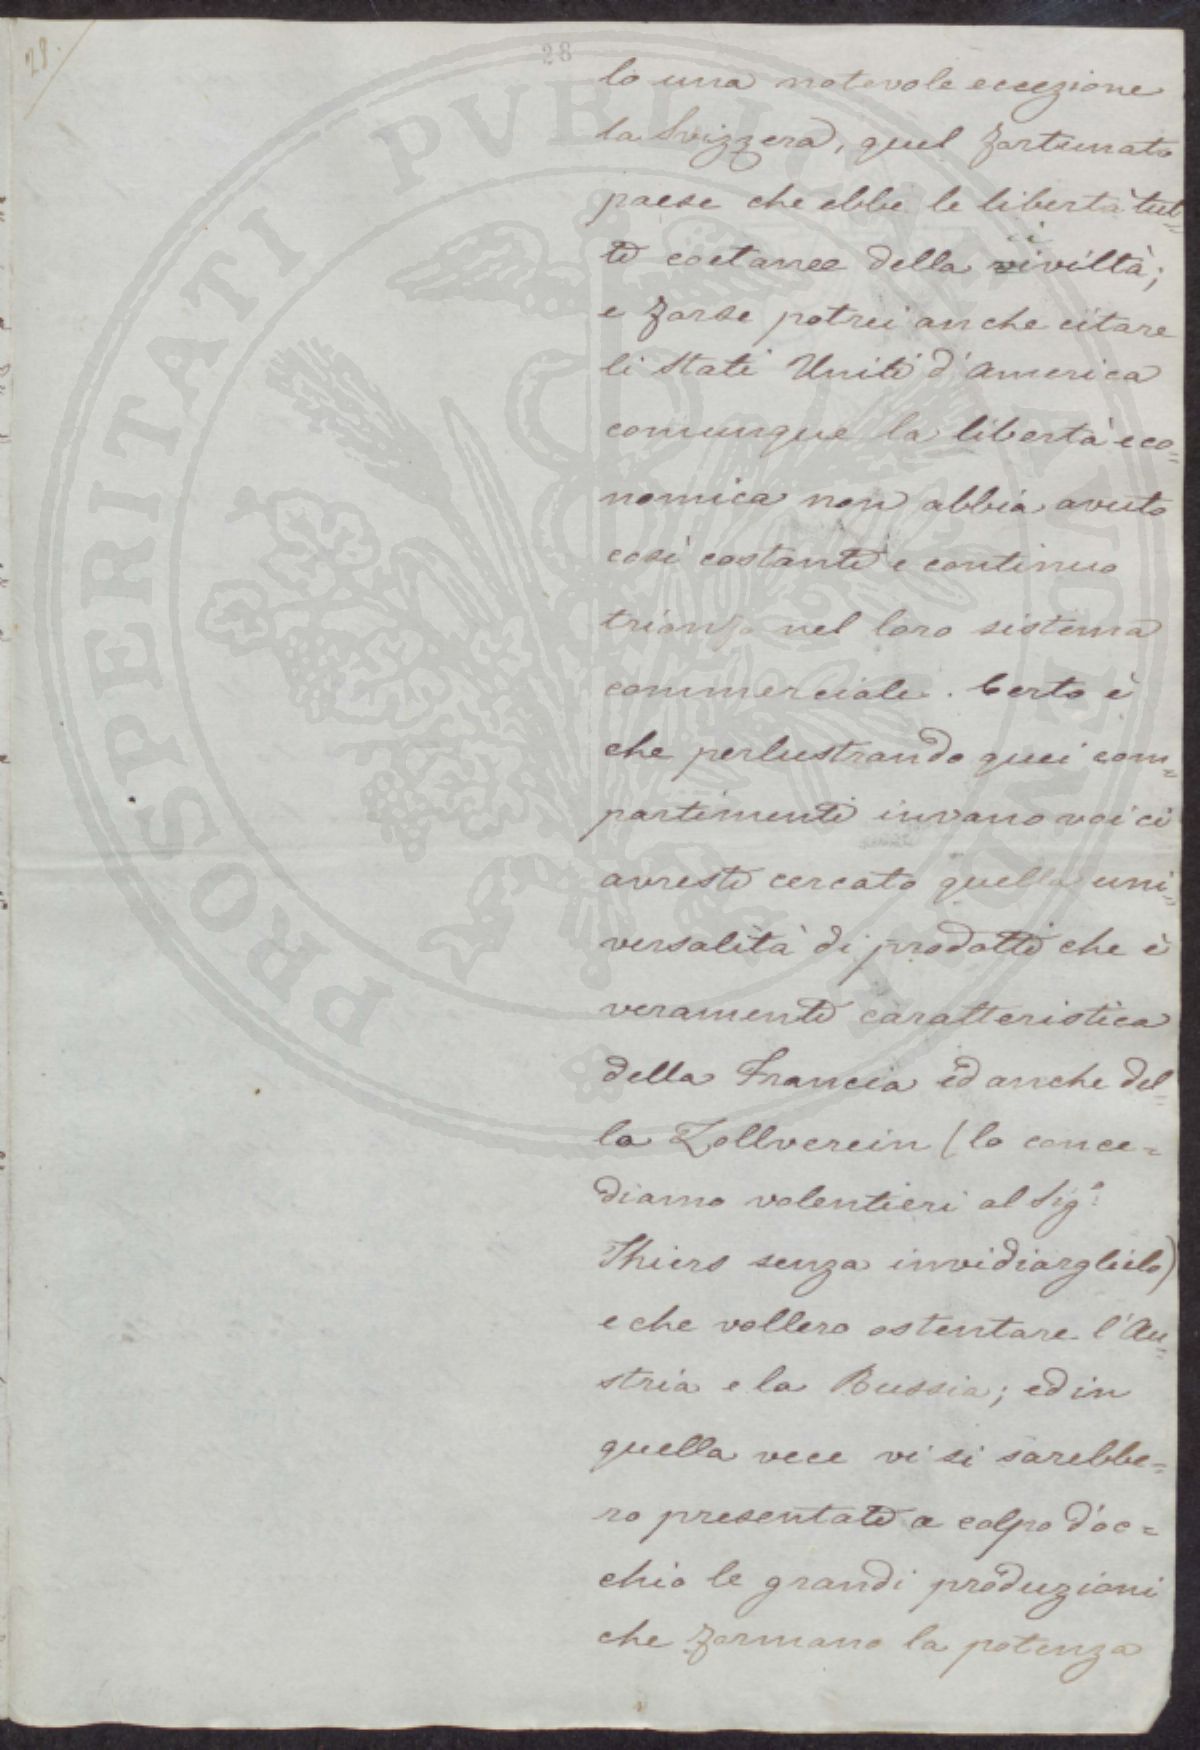 28.
28
lo una notevole eccezione
la Svizzera, quel fortunato
paese che ebbe le libertà tut-
te coetanee della civiltà;
e forse potrei anche citare
li Stati Uniti d'America
comunque la libertà eco=
nomica non abbia avuto
così costante e continuo
trionfo nel loro sistema
commerciale. Certo è
che perlustrando quei com=
partimenti invano voi ci
avreste cercato quella uni=
versalità di prodotti che è
veramente caratteristica
della Francia ed anche del=
la Zollverein (lo conce=
diamo volentieri al Sig.e
Thiers senza invidiarglielo)
e che vollero ostentare l'Au=
stria e la Russia; ed in
quella vece vi si sarebbe=
ro presentate a colpo d'oc=
chio le grandi produzioni
che formano la potenza
PROSPERITATI PVBLICAE AVGENDAE